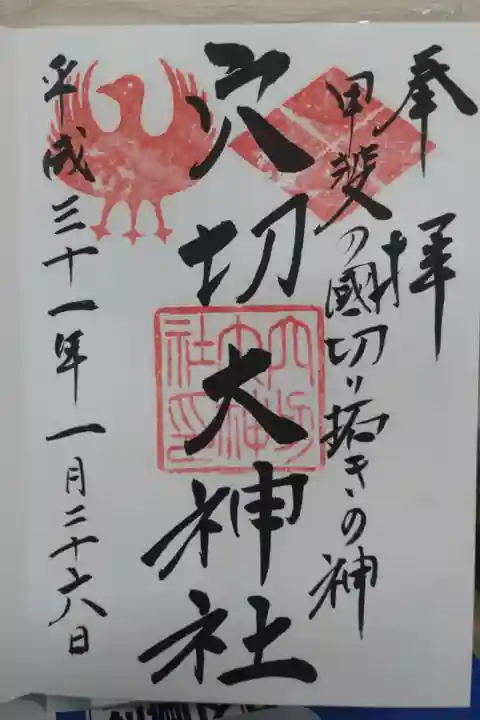 奉拝
甲斐の國切り拓きの神
穴切大神社
穴切大神社印
平成三十一年一月二十六日